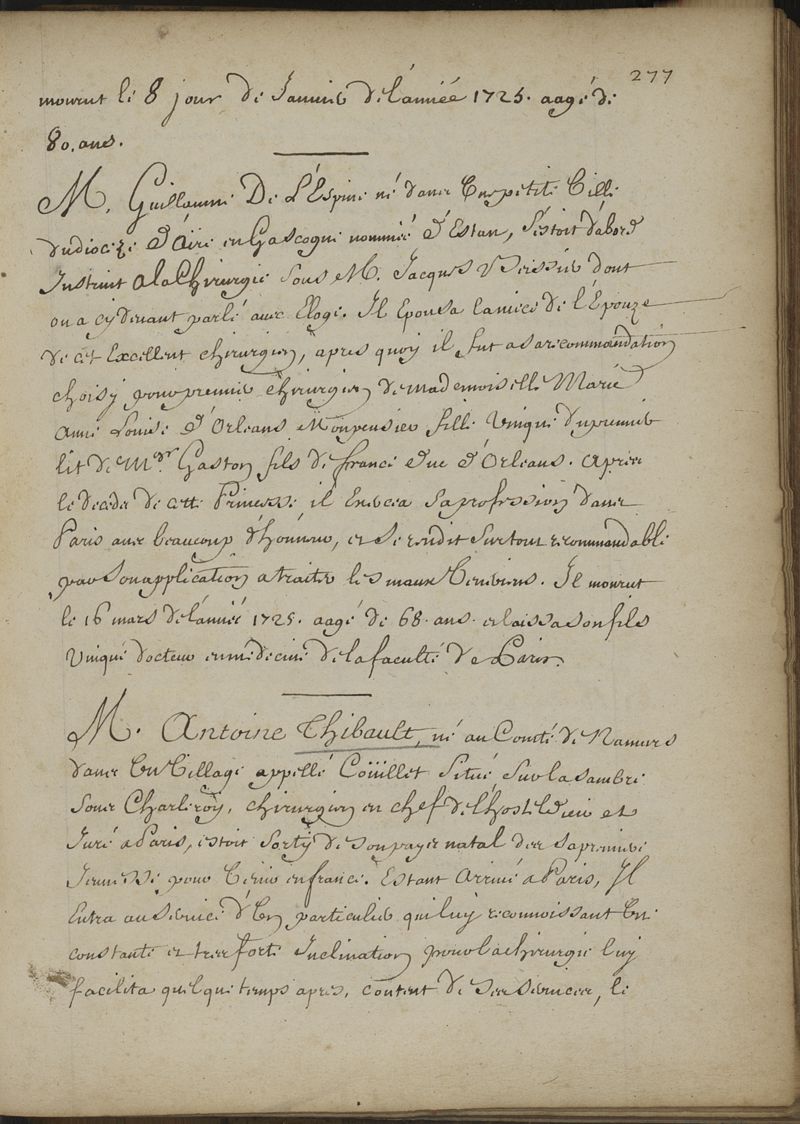 277
mourut le 8 jour de Janvier de l'année 1725. aagé de
80. ans.
M. Guillaume De L'Espine né dans une petite Ville
du diocèze d'Aire en Gascogne nommée d'Estan, s'estoit d'abord
Instruit a la Chirurgie sous M. Jacques
dont
on a cy devant parlé avec Eloge. Il Epousa la niece de l'Epouze
de cet Excellent chirurgien, apres quoy il fut a sa recommandation
choisy pour premier chirurgien de mademoiselle Marie
Anne Louise d'Orleans Monpensier fille Unique du premier
lit de Mgr. Gaston fils de france duc d'Orleans. Apres
le deceds de cette Princesse il Exercea sa profession dans
Paris avec beaucoup d'honneur, et se rendit sur tout recommandable
par son application a traiter les maux Veneriens. Il mourut
le 16 mars de l'année 1725. aagé de 68. ans. et laissa son fils
Unique docteur en médecine de la faculté de Paris.
M. Antoine Thibault, né au Comté de Namurs
dans Un Village appellé Coüillet Situé sur la sambre
sous Charleroy, chirurgien en chef de l'hostel Dieu et
Juré a Paris, estoit sorty de son pays natal des sa premiere
Jeunesse pour Venir en france. Estant Arrivé a Paris, Il
Entra au service d'Un particulier qui luy reconnoissant Une
constante et tres forte Inclination pour la chirurgie luy
facilita quelque temps apres, content de ses services, le